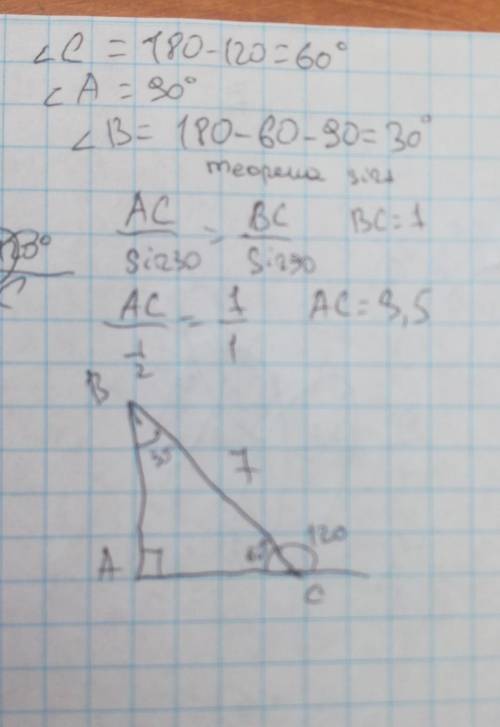 ∠C = 180-120=60°
∠A = 90°
∠B= 180-60-90=30°
теорема sin
AC/sin30 = BC/sin90 BC=7
AC/(1/2) = 7/1 AC=3,5
B
30
7
A
60
120
C
C